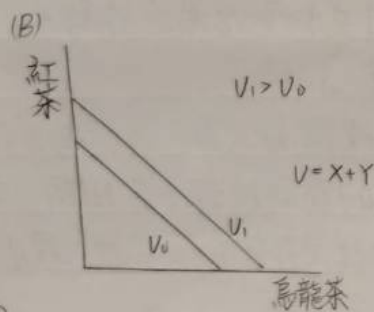 (B)
紅茶
U₁ > U₀
U = X + Y
U₀
U₁
烏龍茶